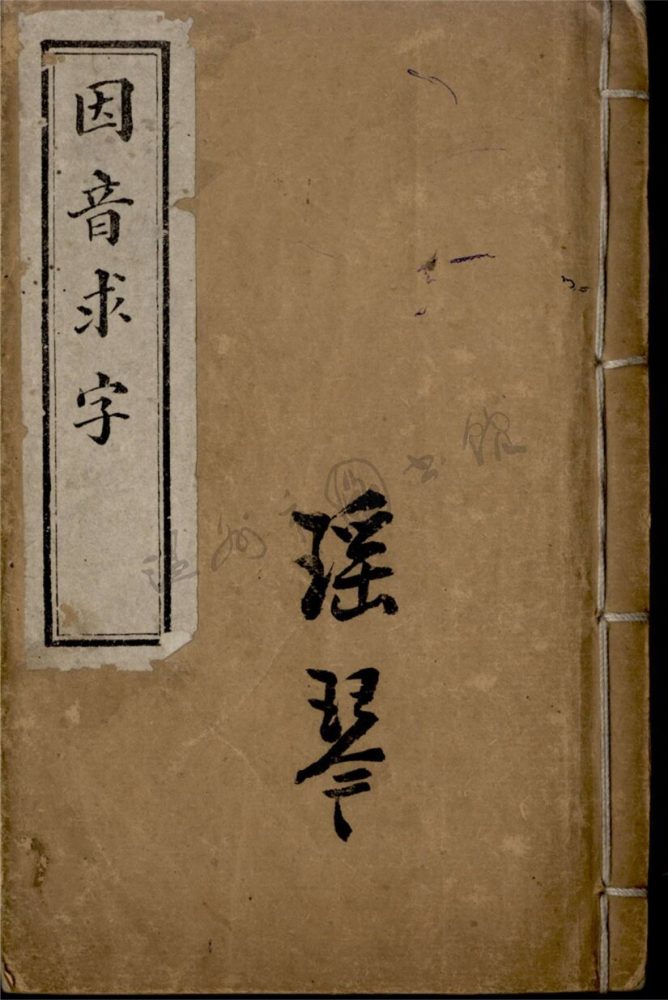 因音求字
瑶琴